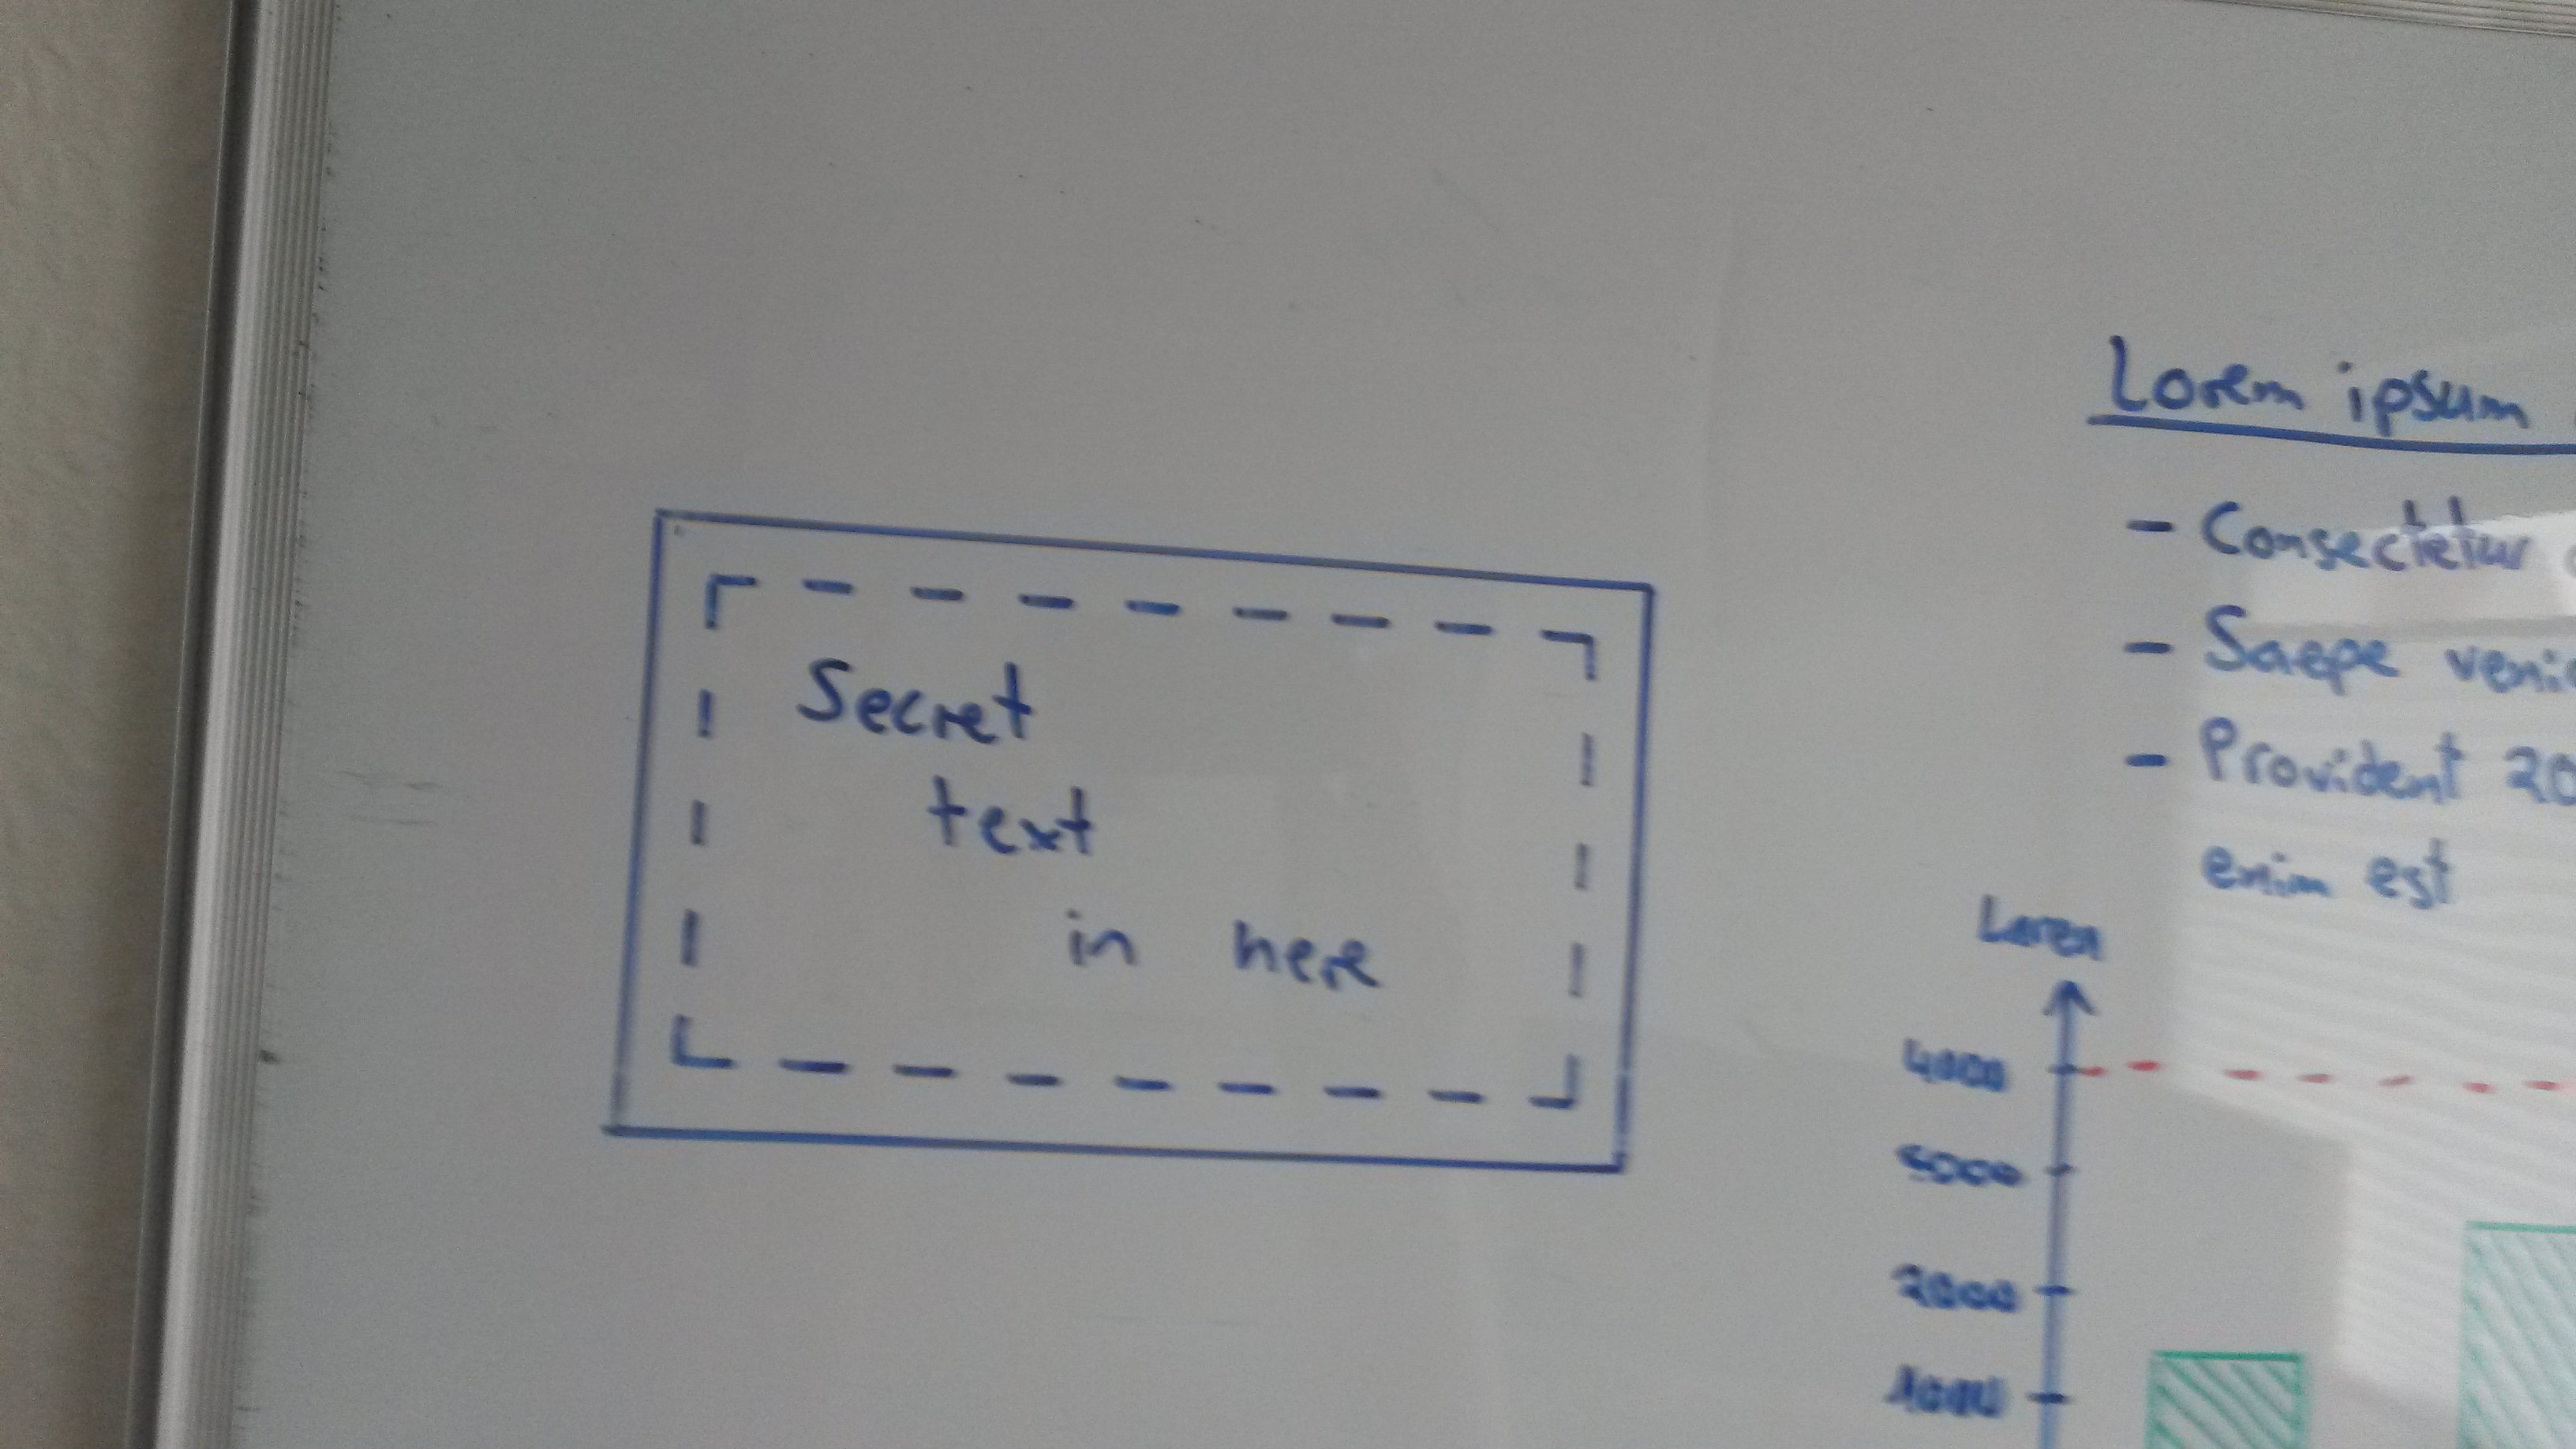 Secret
text
in here
Lorem ipsum
- Consectetur
- Saepe
- Provident 20
enim est
4000
2000
1000